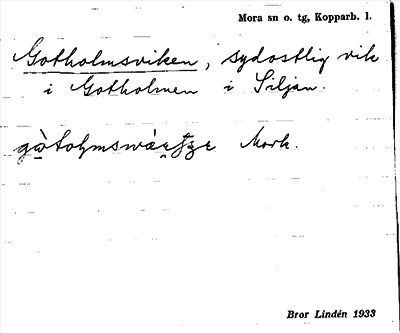 Mora sn o. tg, Kopparb. l.
Gotholmsviken, sydostlig vik
i Gotholmen i Siljan.
Mork.
Bror Lindén 1933